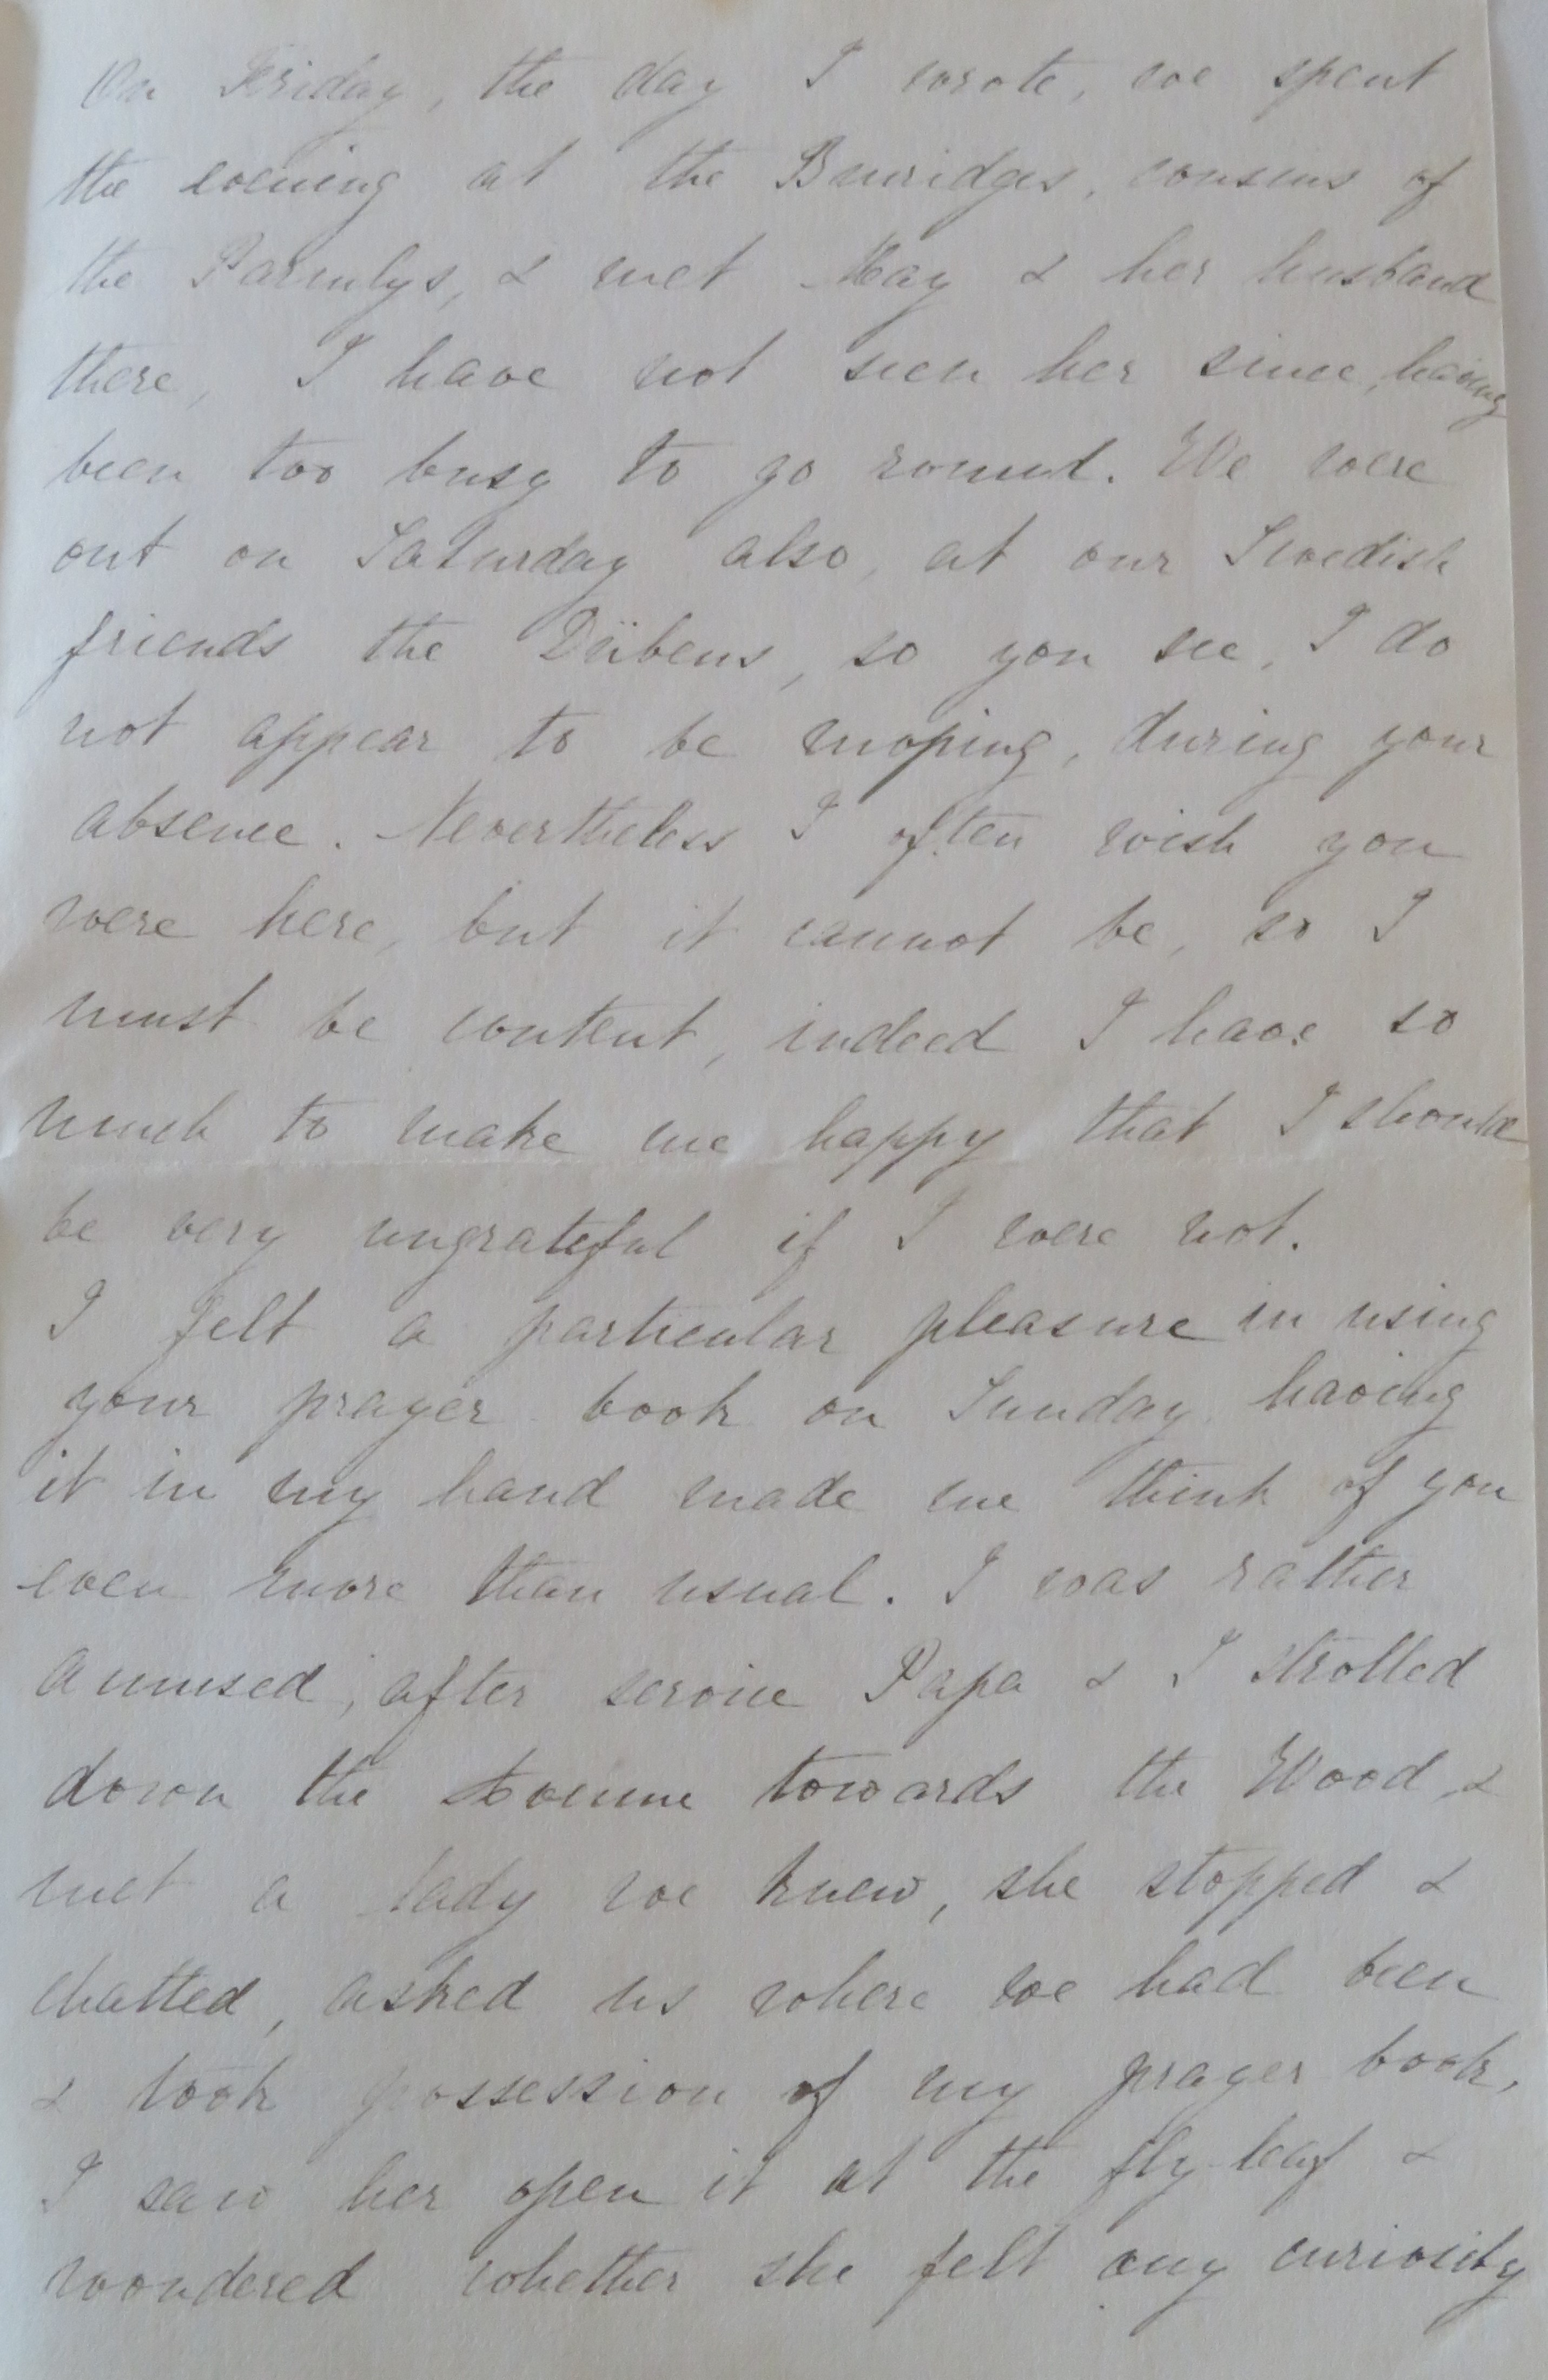 On Friday, the day I wrote, we spent
the evening at the Burridges, cousins of
the Parmlys, & met May & her husband
there, I have not seen her since, having
been too busy to go round. We were
out on Saturday also, at our Swedish
friends the Dübens, so you see, I do
not appear to be moping, during your
absence. Nevertheless I often wish you
were here, but it cannot be, so I
must be content, indeed I have so
much to make me happy that I should
be very ungrateful if I were not.
I felt a particular pleasure in using
your prayer book on Sunday having
it in my hand made me think of you
even more than usual. I was rather
amused, after service Papa & I strolled
down the Avenue towards the Wood, &
met a lady we knew, she stopped &
chatted, asked us where we had been
& took possession of my prayer book,
I saw her open it at the fly-leaf &
wondered whether she felt any curiosity